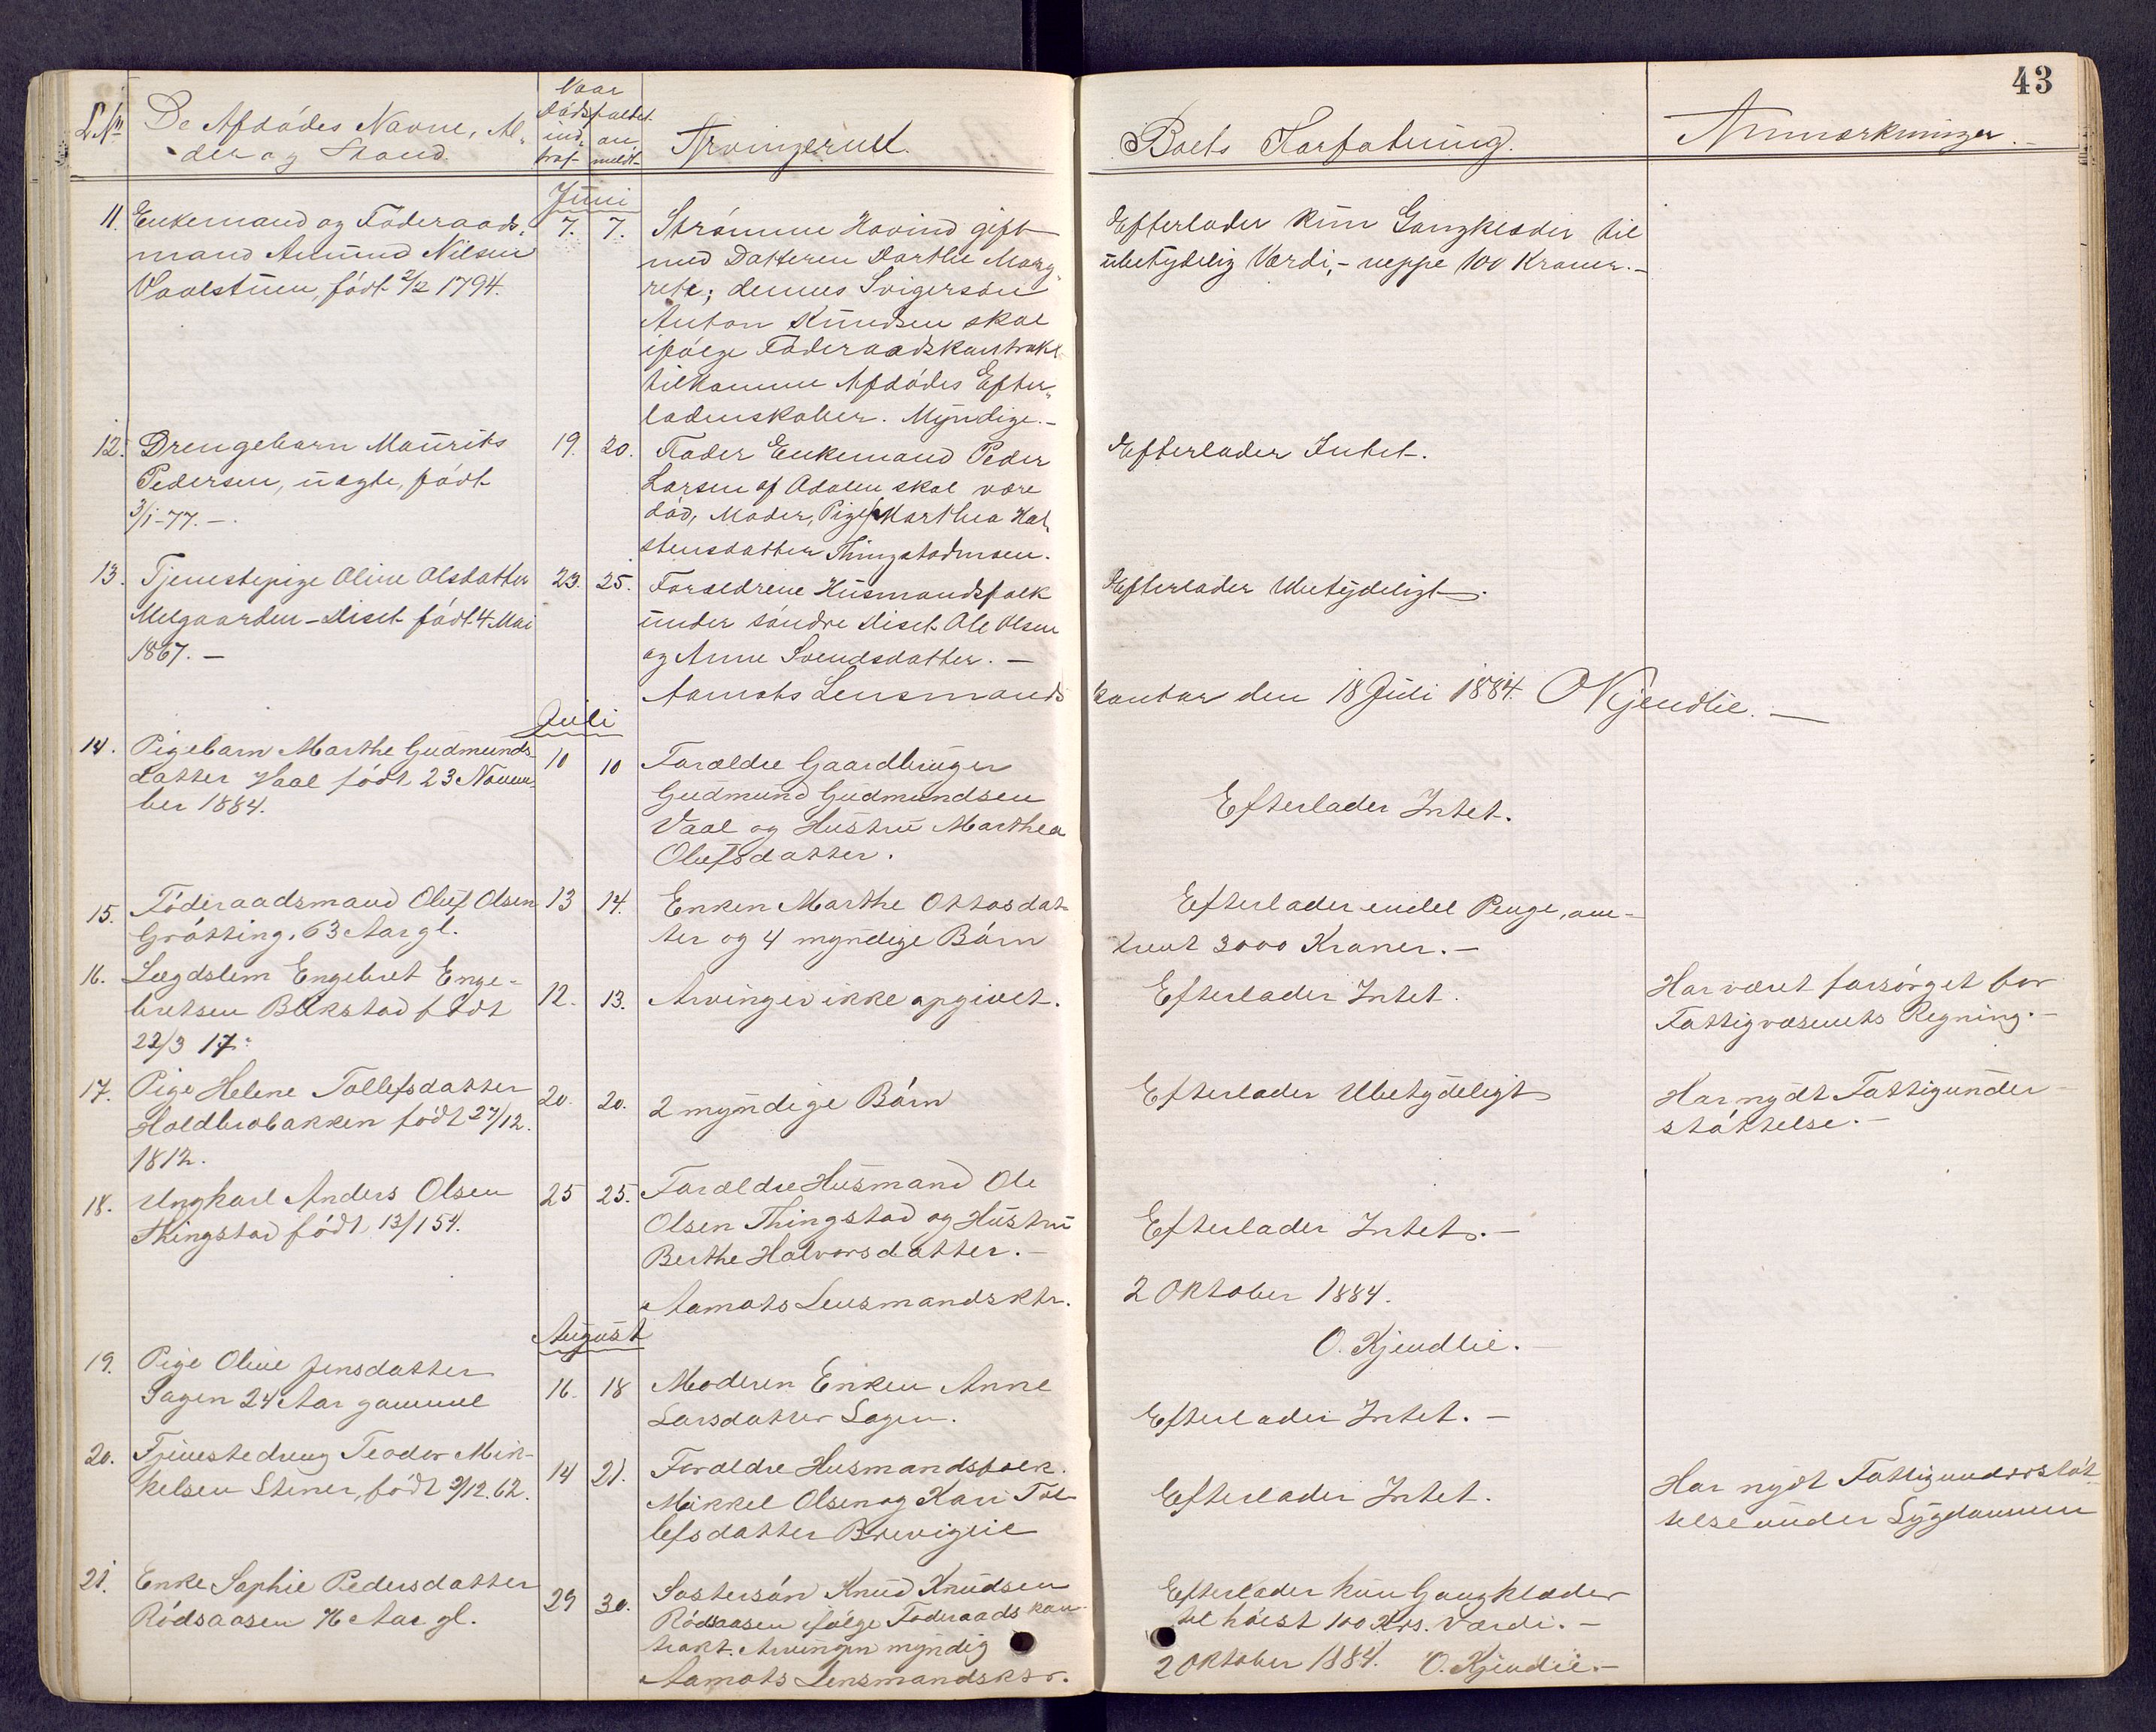 43
L.No
De Afdødes Navne, Al-
der og Stand.
Naar
Dødsfaldet
ind-
traf
an-
meldt
Arvingerne.
Boets Forfatning.
Anmærkninger.
Juni
11. Enkemand og Føderaads-
mand Amund Nilsen
Vaalstuen, født 2/12 1794.
7. 7.
Strømme Hovind gift
med Datteren Dorthe Marg-
rete; dennes Svigersøn
Anton Knudsen skal
ifølge Føderaadskontrakt
tilkomme Afdødes Efter-
ladenskaber. Myndige.-
Efterlader kun Gangklæder til
ubetydelig Værdi,- neppe 100 Kroner.-
12. Drengebarn Maurits
Pedersen, uægte, født
3/1-77.-
19. 20.
Fader Enkemand Peder
Larsen af Adalen skal være
død, Moder, Pige Marthea Hal-
stensdatter Thingstadmoen.
Efterlader Intet.
13. Tjenestepige Oline Olsdatter
Melgaarden-Diset født 4 Mai
1867.-
23. 25.
Forældrene Husmandsfolk
under søndre Diset Ole Olsen
og Anne Svendsdatter.-
Efterlader Ubetydeligt.
Aamots Lensmands
kontor den 18 Juli 1884. O Kjendlie.-
Juli
14. Pigebarn Marthe Gudmunds-
datter Vaal født 23 Novem-
ber 1884.
10 10
Forældre Gaardbruger
Gudmund Gudmundsen
Vaal og Hustru Marthea
Olufsdatter.
Efterlader Intet.
15. Føderaadsmand Oluf Olsen
Grøtting, 63 Aar gl.
13 14.
Enken Marthe Ottosdat-
ter og 4 myndige Børn
Efterlader endel Penge, om-
trent 3000 Kroner.-
16. Lægdslem Engebret Enge-
bretsen Bækstad født
22/3 17.
12. 13.
Arvinger ikke opgivet.
Efterlader Intet.
Har været forsørget for
Fattigvæsenets Regning.-
17. Pige Helene Tollefsdatter
Holdbrobakken født 27/12.
1812.
20. 20.
2 myndige Børn
Efterlader Ubetydeligt
Har nydt Fattigunder-
støttelse.-
18. Ungkarl Anders Olsen
Thingstad født 13/1 54.
25 25.
Forældre Husmand Ole
Olsen Thingstad og Hustru
Berthe Halvorsdatter.-
Efterlader Intet.-
Aamots Lensmandsktr.
2 Oktober 1884.
O. Kjendlie.-
August
19. Pige Oline Jensdatter
Sagen 24 Aar gammel
16. 18
Moderen Enken Anne
Larsdatter Sagen.
Efterlader Intet.-
20. Tjenestedreng Teodor Mik-
kelsen Stener, født 9/12.62.
14 21.
Forældre Husmandsfolk
Mikkel Olsen og Kari Tol-
lefsdatter
Efterlader Intet.
Har nydt Fattigunderstøt-
telse under Sygdommen
21. Enke Sophie Pedersdatter
Rødsaasen 76 Aar gl.
29 30.
Søstersøn Knud Knudsen
Rødsaasen ifølge Føderaadskon-
trakt. Arvingen myndig
Efterlader kun Gangklæder
til høist 100 Krs. Værdi.-
Aamots Lensmandsktr.
2 Oktober 1884. O. Kjendlie.-